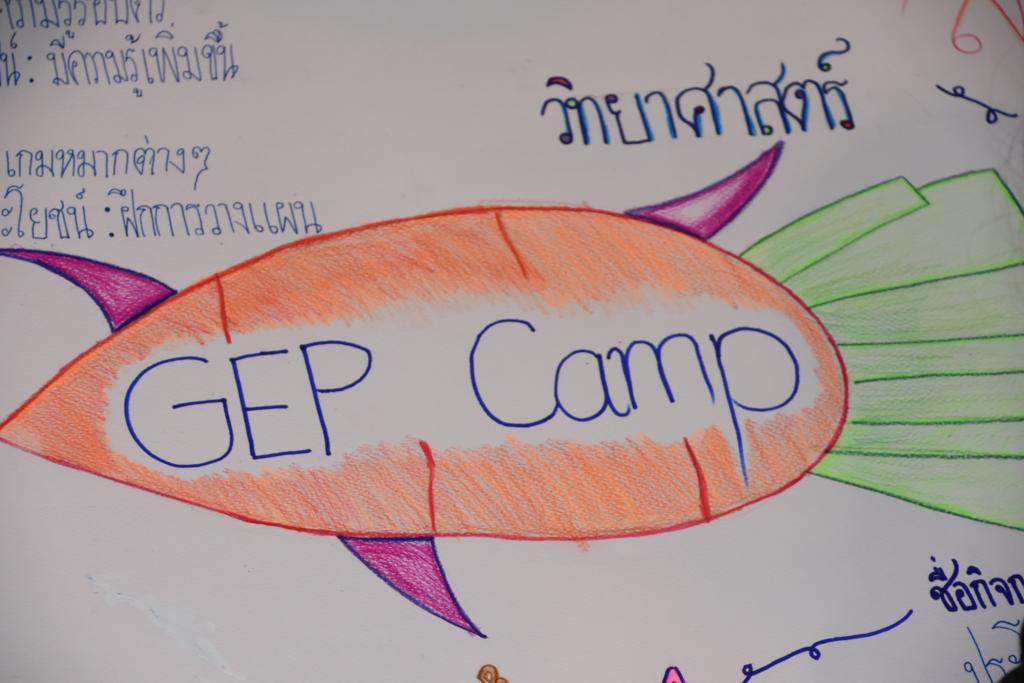 ความรู้รอบตัว
น์ : มีความรู้เพิ่มขึ้น
วิทยาศาสตร์
เกมหมากต่างๆ
ะโยชน์ : ฝึกการวางแผน
GEP Camp
ชื่อกิจก
ประโ